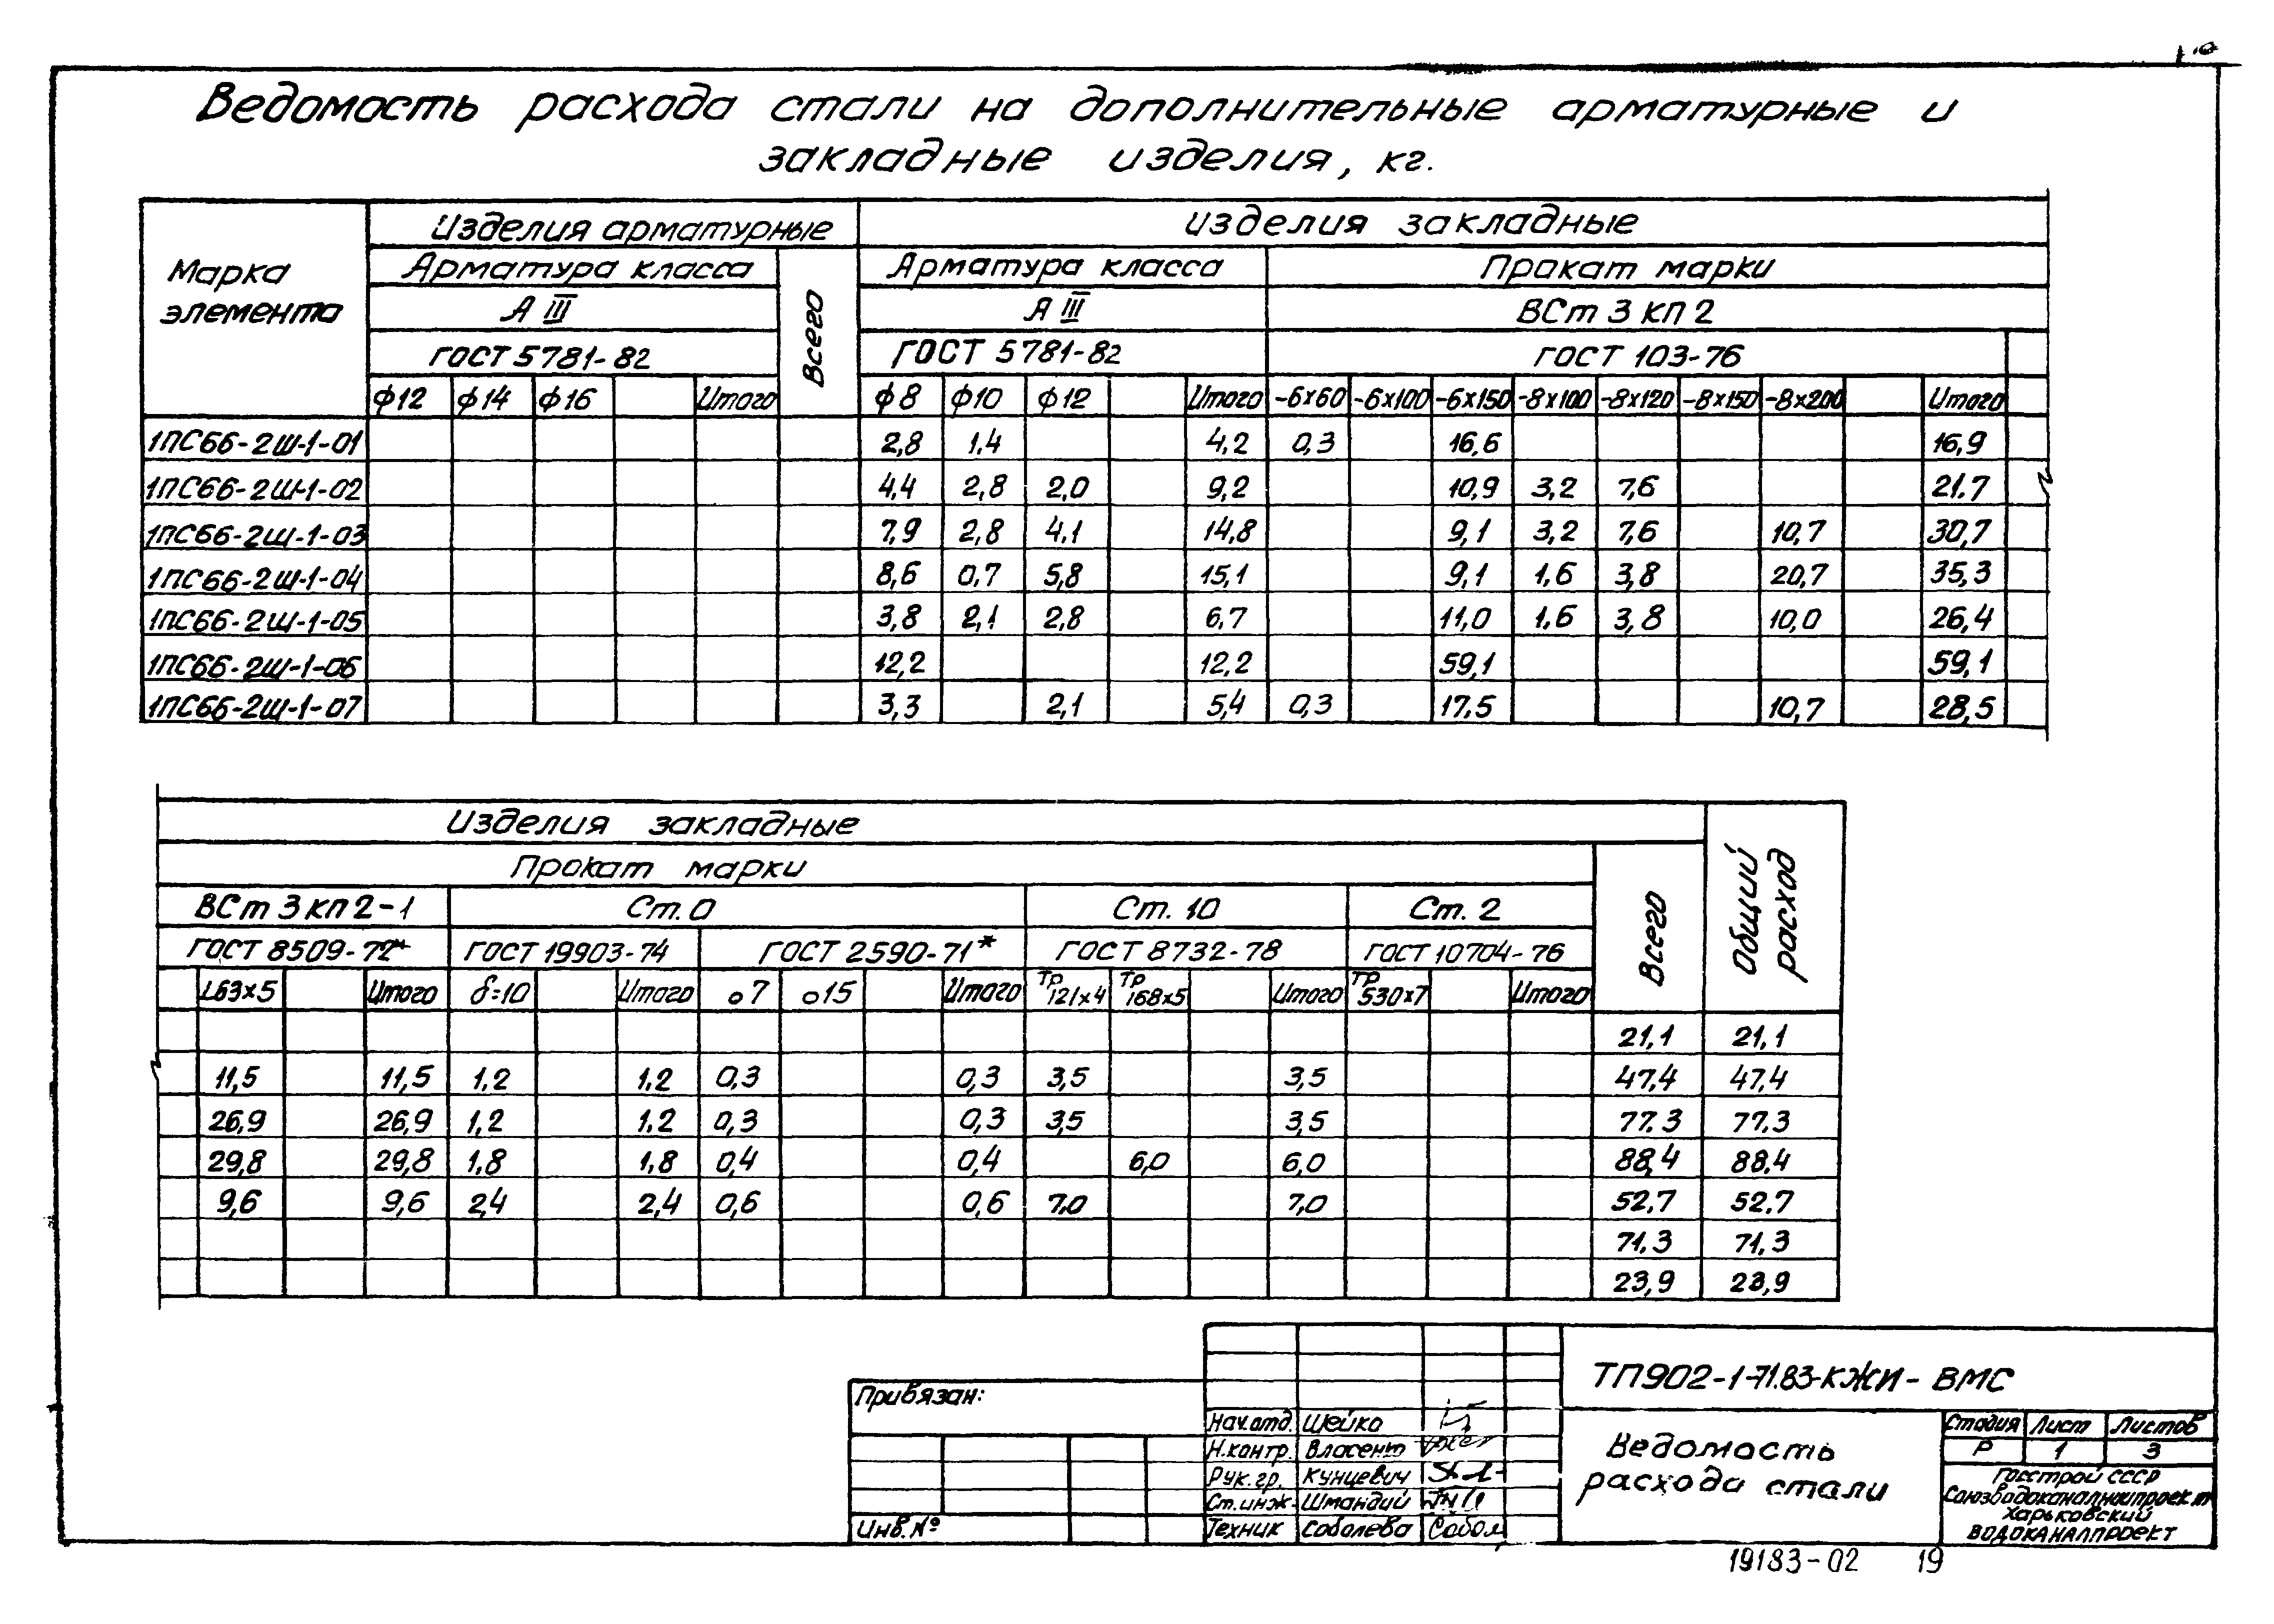 Ведомость расхода стали на дополнительные арматурные и
закладные изделия, кг.
Марка элемента
Изделия арматурные
Изделия закладные
Арматура класса
Всего
Арматура класса
Прокат марки
А III
А III
ВСт 3 кп 2
ГОСТ 5781-82
ГОСТ 5781-82
ГОСТ 103-76
ф12 ф14 ф16 Итого ф8 ф10 ф12 Итого -6х60 -6х100 -6х150 -8х100 -8х120 -8х150 -8х200 Итого
1ПС66-2Ш-1-01 2,8 1,4 4,2 0,3 16,6 16,9
1ПС66-2Ш-1-02 4,4 2,8 2,0 9,2 10,9 3,2 7,6 21.7
1ПС66-2Ш-1-03 7,9 2,8 4,1 14,8 9,1 3,2 7,6 10,7 30,7
1ПС66-2Ш-1-04 8,6 0,7 5,8 15,1 9,1 1,6 3,8 20,7 35,3
1ПС66-2Ш-1-05 3,8 2,1 2,8 6,7 11,0 1,6 3,8 10,0 26,4
1ПС66-2Ш-1-06 12,2 12,2 59,1 59,1
1ПС66-2Ш-1-07 3,3 2,1 5,4 0,3 17,5 10,7 28,5
Изделия закладные
Общий расход
Прокат марки
Всего
ВСт 3 кп 2-1 Ст. 0 Ст. 10 Ст. 2
ГОСТ 8509-72* ГОСТ 19903-74 ГОСТ 2590-71* ГОСТ 8732-78 ГОСТ 10704-76
L63х5 Итого δ=10 Итого о7 о15 Итого Тр 121х4 Тр 168х5 Итого Тр 530х7 Итого
21,1 21,1
11,5 11,5 1,2 1,2 0,3 0,3 3,5 3,5 47,4 47,4
26,9 26,9 1,2 1.2 0,3 0,3 3,5 3,5 77.3 77.3
29,8 29,8 1,8 1,8 0,4 0,4 6,0 6,0 88,4 88.4
9,6 9,6 2,4 2,4 0,6 0,6 7,0 7,0 52,7 52.7
71,3 71,3
23,9 23,9
Привязан:
Инв.№
Нач.отд. Шейко
Н.контр. Власент
Рук.гр. Кунцевич
Ст.инж. Шмандий
Техник Соболева Собол
ТП902-1-71.83-КЖИ-ВМС
Ведомость
расхода стали
Стадия Лист Листов
Р 1 3
Госстрой СССР
Союзводоканалниипроект
Харьковский
ВОДОКАНАЛПРОЕКТ
19183-02 19